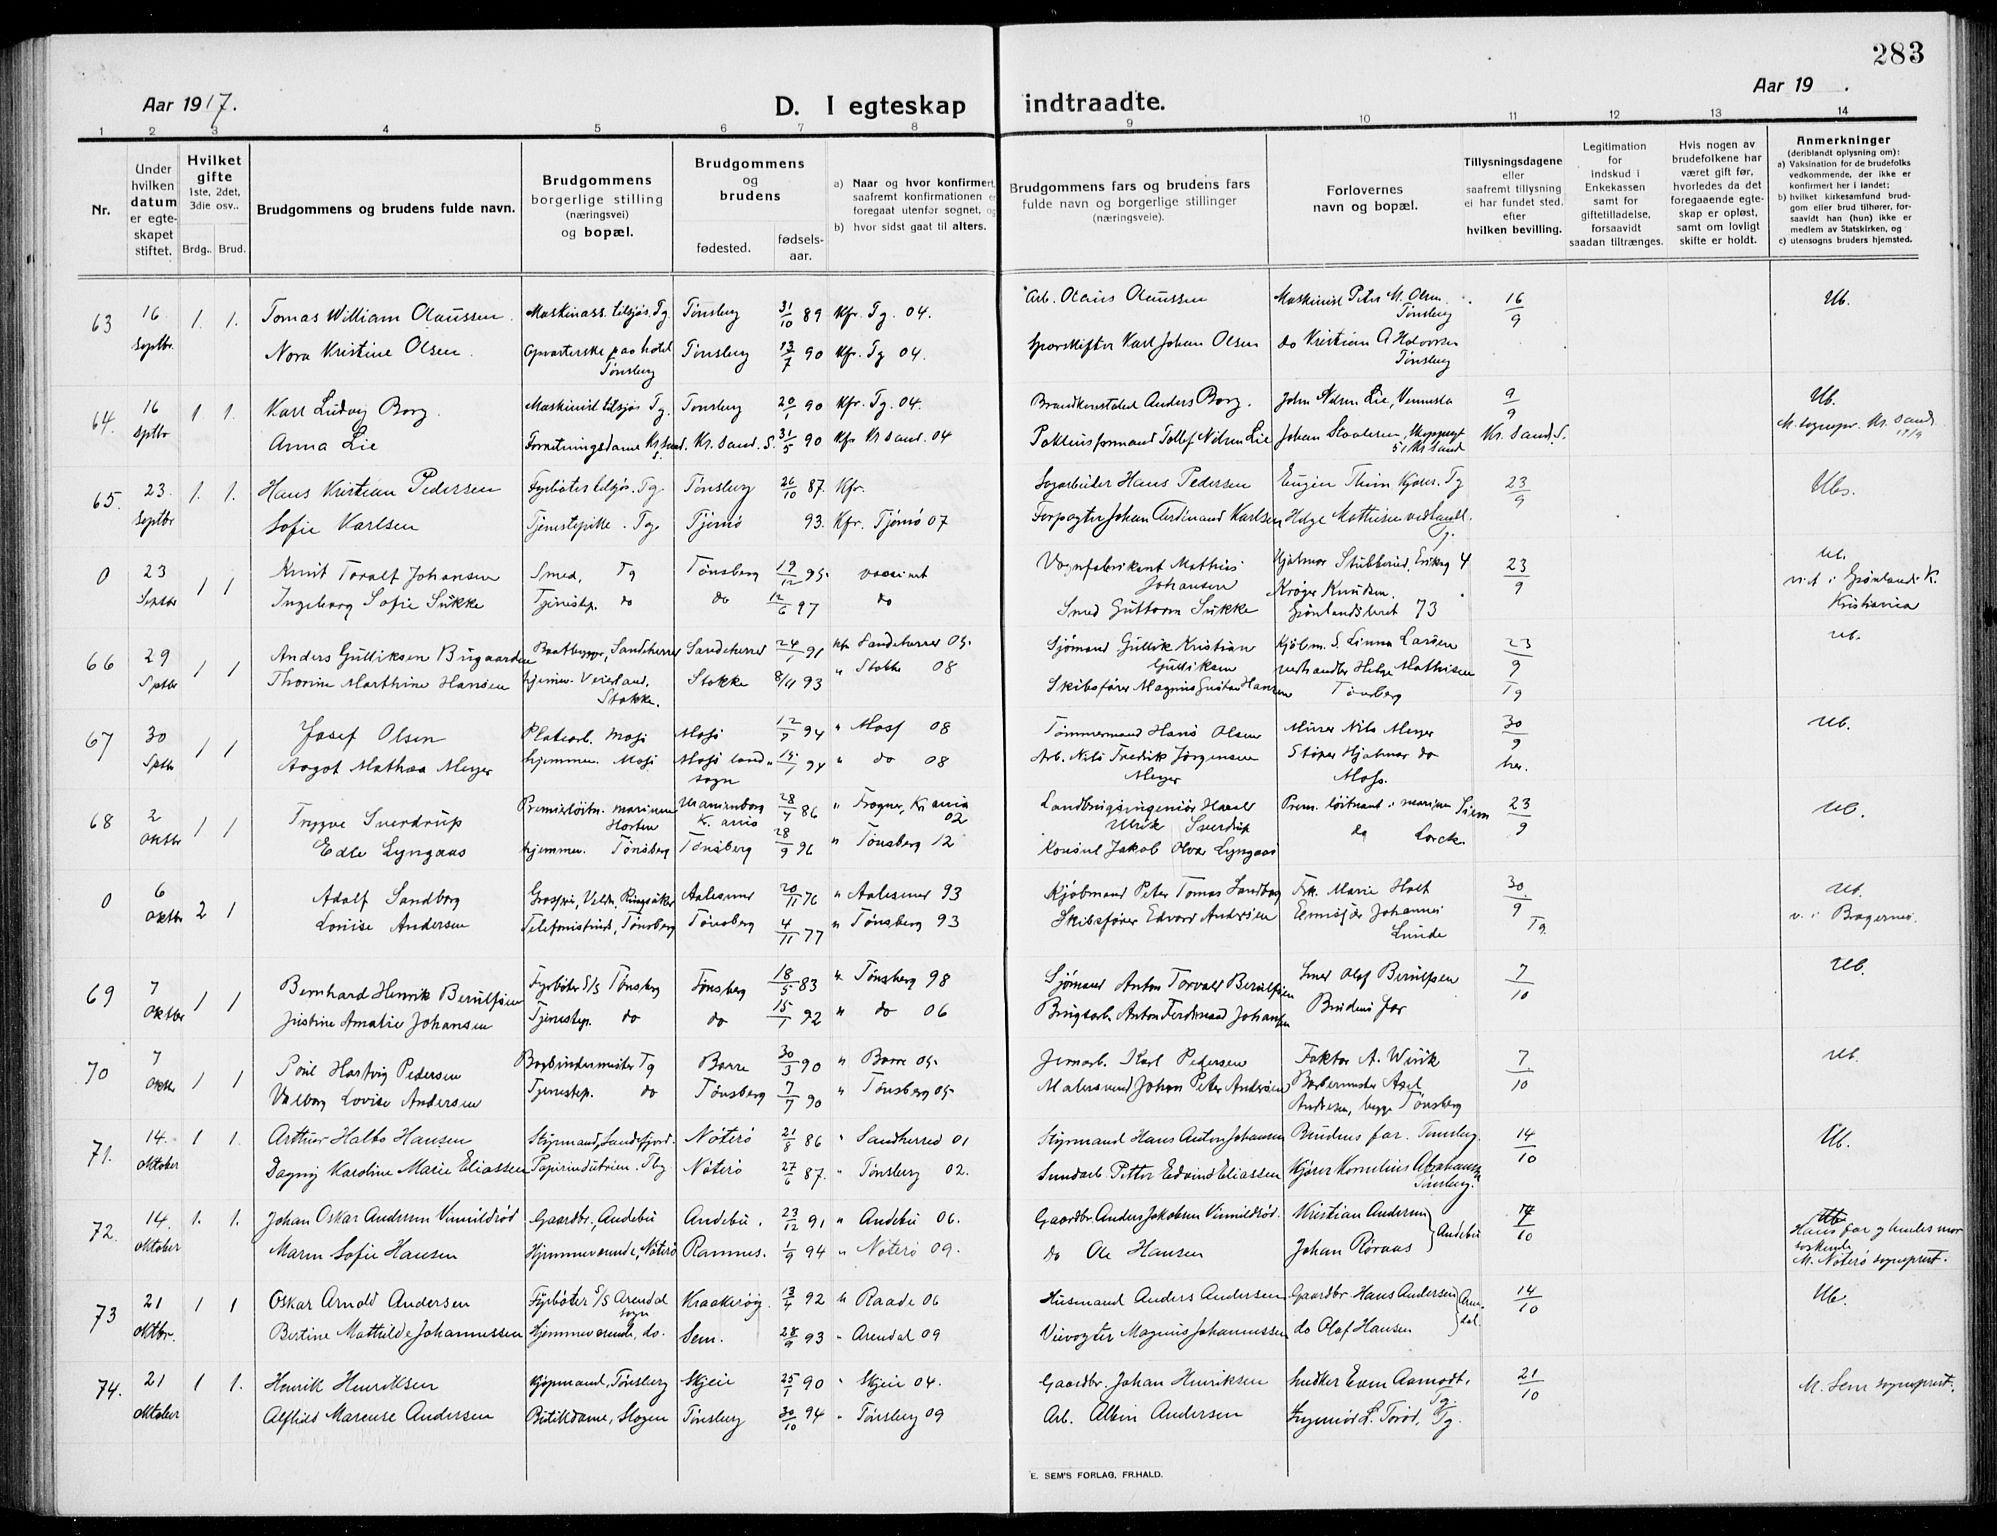 283
Aar 1917.
D. I egteskap indtraadte.
Aar 19 .
1 2 3 4 5 6 7 8 9 10 11 12 13 14
Nr.
Under hvilken datum er egte-skapet stiftet.
Hvilket gifte
1ste, 2det, 3die osv..
Brdg.. Brud.
Brudgommens og brudens fulde navn.
Brudgommens borgerlige stilling (næringsvei) og bopæl.
Brudgommens og brudens
fødested. fødsels-aar.
a) Naar og hvor konfirmert,
saafremt konfirmationen
foregaat utenfor sognet,
b) hvor sidst gaat til alters.
Brudgommens fars og brudens fars
fulde navn og borgerlige stillinger
(næringsveie).
Forlovernes navn og bopæl.
Tillysningsdagene
eller
saafremt tillysning
ei har fundet sted.
efter
hvilken bevilling.
Legitimation
for
indskud i
Enkekassen
samt for
giftetilladelse,
forsaavidt
saadan tiltrænges.
Hvis nogen av
brudefolkene har
været gift før,
hvorledes da det
foregaaende egte-
skap er opløst,
samt om lovligt
skifte er holdt.
Anmerkninger
(deriblandt oplysning om):
a) Vaksination for de brudefolks
vedkommende, der ikke er
konfirmert her i landet;
b) hvilket kirkesamfund brud-
gom eller brud tilhører, for-
saavidt han (hun) ikke er
medlem av Statskirken, og
c) utensogns bruders hjemsted.
63 16 Septbr. 1. 1. Tomas William Olaussen. Maskinass. tilsjøs. Tg. Tønsberg 31/10 89 Kfr. Tg. 04. Arb. Olaus Olaussen Maskinist Peter M. Olsen. Tønsberg 16/9 Ub.
Nora Kristine Olsen. Opvarterske paa hotel Tønsberg Tønsberg 13/7 90 Kfr. Tg 04. Sporskifter Karl Johan Olsen do Kristian A Halvorsen Tønsberg
64. 16 Sptbr 1 1. Karl Ludvig Borg. Maskinist tilsjøs Tg. Tønsberg 20/1 90 Kfr. Tg. 04. Brandkonstabel Anders Borg. John Nilsen Lie, Vennesla 9/9 Ub.
Anna Lie Forretningsdame Kr.sand. Kr. sand. S. 31/5 90 Kfr Kr sand. 04 Pakhusformand Tollef Nilsen Lie Johan Kr. sand. S. M. sognepr. Kr. sand
65. 23. Septbr 1. 1. Hans Kristian Pedersen Fyrbøter tilsjøs. Tg. Tønsberg 26/10 87. Kfr. Sagarbeider Hans Pedersen Eugen Thim Kjører. Tg 23/9 Ubs.
Sofie Karlsen Tjenestepike. Tg. Tjømø 93. Kfr. Tjømø 07 Forpagter Johan Ferdinand Karlsen Helge Mathisen vedhandl. Tg.
0 23 Septbr 1 1 Knut Toralf Johansen Smed, Tg Tønsberg 19/12 95. vaccinert Vognfabrikant Mathias Johansen Hjalmar Stubberud, 4 23/9 Ub.
Ingeborg Sofie Sukke Tjenestep. do do 12/6 97 do Smed Guttorm Sukke Krøger Knudsen. Grønlandsleret 73 viet i Grønlands K. Kristiania
66 29 Sptbr 1 1 Anders Gulliksen Bugaarden Baatbygger, Sandeherred Sandeherred 24/1 91 kfr Sandeherred 05. Sjømand Gullik Kristian Gulliksen Kjøbm. S. Linna Larsen 23/9 Tg Ub.
Thorine Marthine Hansen hjemme. Veierland. Stokke. Stokke 8/11 93 " Stokke 08 Skibsfører Magnus Gustav Hansen vedhandler Helge Mathisen Tønsberg
67 30 Sptbr 1 1 Josef Olsen Platearb. Moss Moss 12/9 94 " Moss 08 Tømmermand Hans Olsen Murer Nils Meyer 30/9 her. Ub.
Aagot Mathea Meyer hjemmev. Moss Moss landsogn 15/1 94 " do 08 Arb. Nils Fredrik Jørgensen Meyer Støper Hjalmar do Moss.
68 2 Oktbr 1 1 Trygve Sverdrup Premierløitn. marinen Horten Uranienborg K.ania 28/7 86 " Frogner, Kr.ania 02 Landbrugsingeniør Harald Ulrik Sverdrup Prem. løitnant i marinen Siem 23/9 Ub.
Edle Lyngaas hjemmev. Tønsberg Tønsberg 28/9 96 " Tønsberg 12 Konsul Jakob Olvar Lyngaas do Lorck.
0 6 Oktbr 2 1 Adolf Sandborg Ringsaker Aalesund 20/11 76 " Aalesund 93 Kjøbmand Peter Tomas Sandborg Frk. Marie Holt 30/9 Tg. Ub.
Louise Andersen Telefonistinde, Tønsberg Tønsberg 4/11 77 " Tønsberg 93 Skibsfører Edvard Andersen Johannes Lunde v. i Bragernes.
69 7 Oktbr 1 1 Bernhard Henrik Berulfsen Fyrbøter S/S Tønsberg Tønsberg 18/5 83 " Tønsberg 98 Sjømand Anton Torvald Berulfsen Smed Olaf Berulfsen 7/10 Ub.
Justine Amalie Johansen Tjenestep. do do 15/1 92 " do 06 Brugsarb. Anton Ferdinand Johansen Brudens far
70 7 Oktbr 1 1 Poul Hartvig Pedersen Bogbindermester Tg Borre 30/3 90 " Borre 05. Jernarb. Karl Pedersen Faktor A. Wirik 7/10 Ub.
Valborg Lovise Andersen Tjenestep. do Tønsberg 7/7 90 " Tønsberg 05 Malersvend Johan Peter Andersen Barbermester Axel Andresen, begge Tønsberg
71. 14. Oktober 1 1. Arthur Halbo Hansen Styrmand, Sandefjord. Nøterø 21/8 86 " Sandherred 01 Styrmand Hans Anton Johansen Brudens far. Tønsberg. 14/10 Ub.
Dagny Karoline Marie Eliassen Papirindustrien. Tbg Nøterø 27/6 87. " Tønsberg 02. Sundarb. Petter Edvind Eliassen Kjører Kornelius Abrahamsen Tønsberg.
72. 14. Oktober 1. 1. Johan Oskar Andersen Vinnildrød Gaardbr., Andebu Andebu. 23/12 91 " Andebu 06. Gaardbr. Anders Jakobsen Vinnildrød. Kristian Andersen Andebu 14/10 Ub. Hans far og hendes mor søskende
Maren Sofie Hansen Hjemmeværende, Nøterø Ramnes. 1/9 94 " Nøterø 09. do Ole Hansen Johan Røraas M. Nøterø sogneprest.
73 21 Oktbr. 1 1 Oskar Arnold Andersen Fyrbøter S/S Arendal sogn Kraakerøy. 13/4 92 " Raade 06 Husmand Anders Andersen Gaardbr Hans Andersen Arendal. 14/10 Ub.
Bertine Mathilde Johannessen Hjemmeværende, do. Sem. 28/9 93 " Arendal 09 Veivogter Magnus Johannessen do Olaf Hansen
74. 21 Oktober 1 1. Henrik Henriksen Kjøpmand, Tønsberg Skjeie 25/1 90 " Skjeie 04. Gaardbr. Johan Henriksen Snedker Even Aamodt. Tg. 21/10 M. Sem sogneprest.
Alfhild Marense Andersen Butikdame, Slagen Tønsberg 30/10 94 " Tønsberg 09 Arb. Albin Andersen Ingeniør L. Torød, Tg.
E. SEM'S FORLAG, FR.HALD.